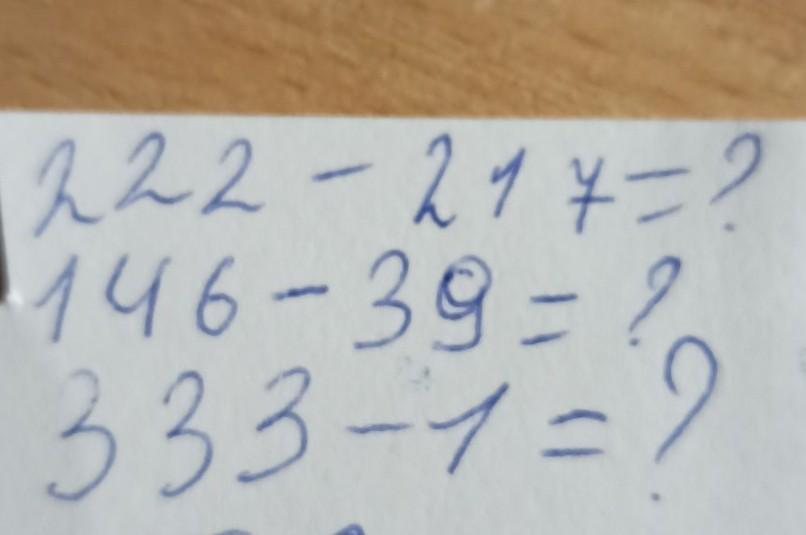 222 - 217 = ?
146 - 39 = ?
333 - 1 = ?